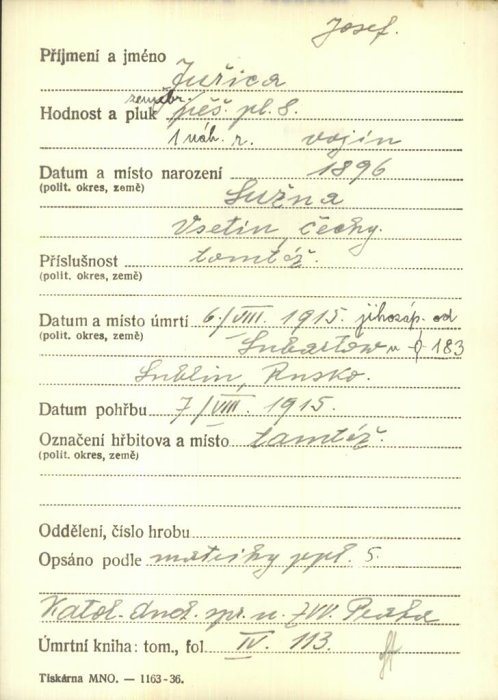 Josef.
Příjmení a jméno Juřica
Hodnost a pluk zeměbr. pěš. pl. 8.
1 náh. r. vojín
Datum a místo narození 1896
(polit. okres, země) Lužna
Vsetín, Čechy.
Příslušnost tamtéž.
(polit. okres, země)
Datum a místo úmrtí 6./VIII. 1915. jihozáp. od
(polit. okres, země) Lubartow u 183
Lublin, Rusko.
Datum pohřbu 7/VIII. 1915.
Označení hřbitova a místo tamtéž.
(polit. okres, země)
Oddělení, číslo hrobu
Opsáno podle matriky ppl. 5.
Katol. duch. spr. u ZVV. Praha
Úmrtní kniha: tom., fol. IV. 113.
Tiskárna MNO. — 1163-36.